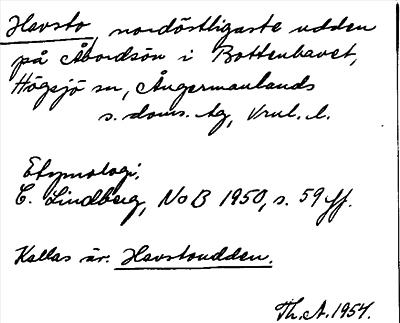 Havsto, nordöstligaste udden
på Åbordsön i Bottenhavet,
Högsjö sn, Ångermanlands
s. doms. tg, Vnrl. l.
Etymologi:
C. Lindberg, NoB 1950, s. 59 ff.
Kallas är: Havstoudden.
Th. A. 1954.